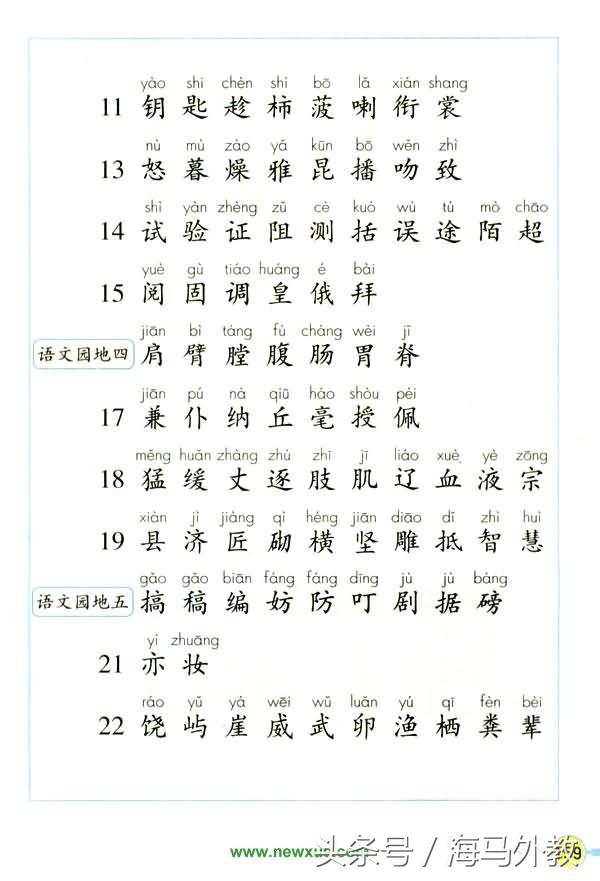 yào shi chèn shì bō lǎ xián shang
11 钥 匙 趁 柿 菠 喇 衔 裳
nù mù zào yǎ kūn bō wěn zhì
13 怒 暮 燥 雅 昆 播 吻 致
shì yàn zhèng zǔ cè kuò wù tú mò chāo
14 试 验 证 阻 测 括 误 途 陌 超
yuè gù tiáo huáng é bài
15 阅 固 调 皇 俄 拜
jiān bì táng fù cháng wèi jǐ
语文园地四 肩 臂 膛 腹 肠 胃 脊
jiān pú nà qiū háo shòu pèi
17 兼 仆 纳 丘 毫 授 佩
měng huǎn zhàng zhú zhī jī liáo xuè yè zōng
18 猛 缓 丈 逐 肢 肌 辽 血 液 宗
xiàn jì jiàng qì héng jiān diāo dǐ zhì huì
19 县 济 匠 砌 横 坚 雕 抵 智 慧
gǎo gǎo biān fáng fáng dīng jù jù bàng
语文园地五 搞 稿 编 妨 防 叮 剧 据 磅
yì zhuāng
21 亦 妆
ráo yǔ yá wēi wǔ luǎn yú qī fèn bèi
22 饶 屿 崖 威 武 卵 渔 栖 粪 辈
www.newxue.com
头条号 / 海马外教